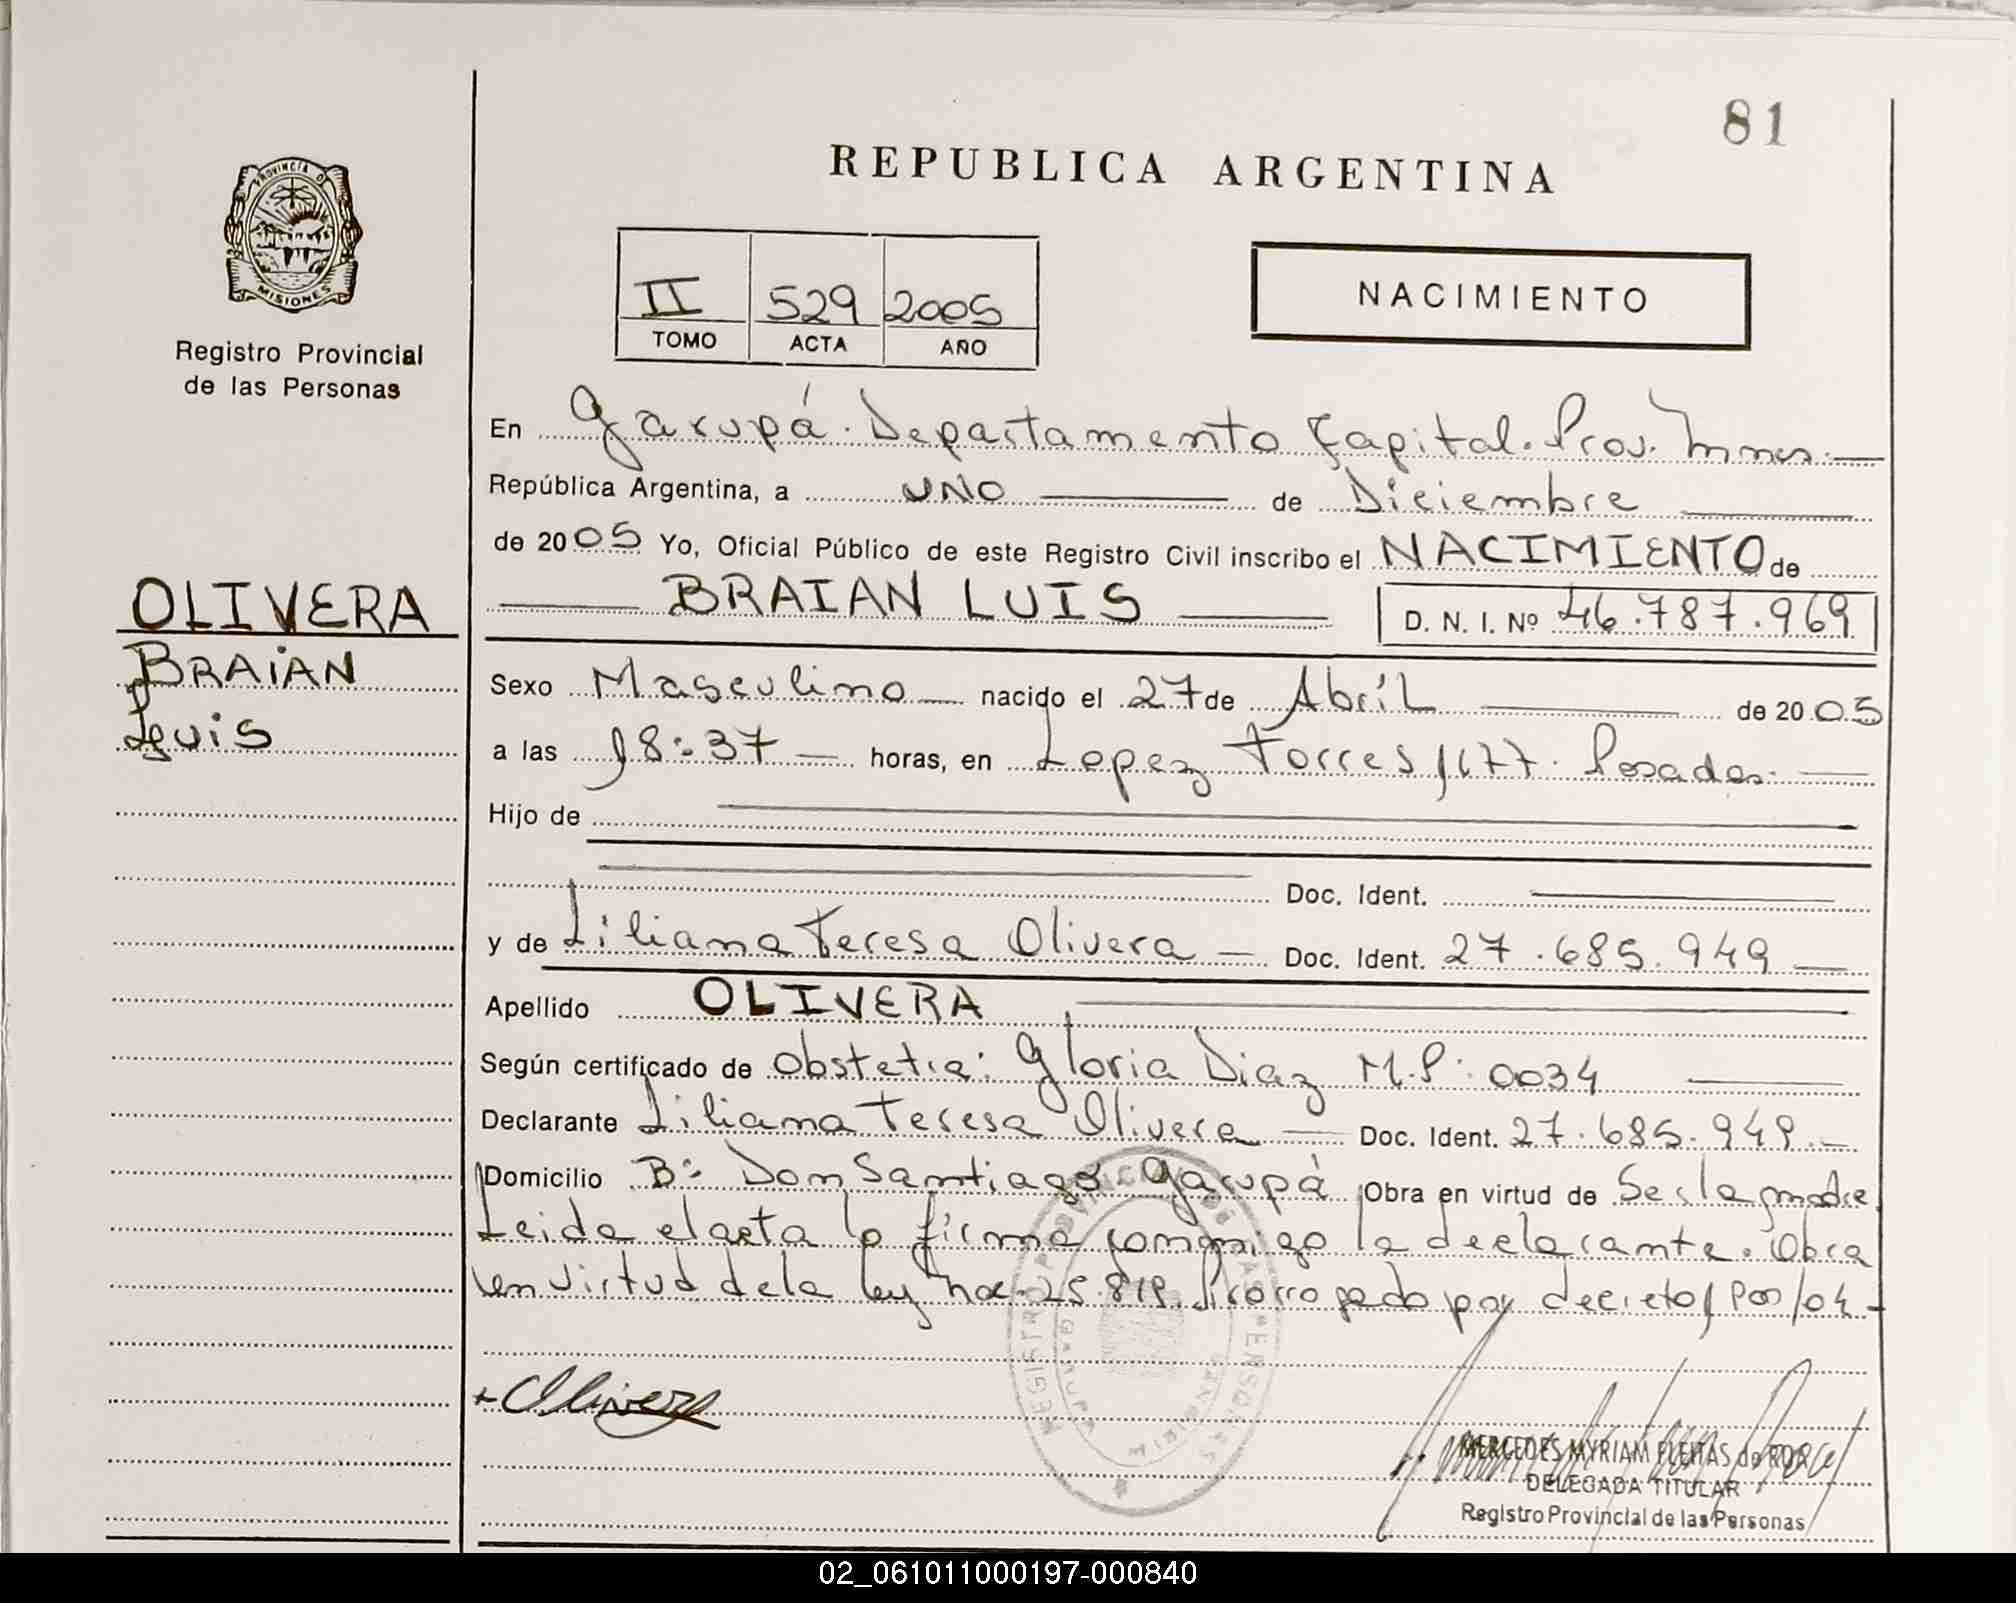 81
REPUBLICA ARGENTINA
PROVINCIA D
MISIONES
Registro Provincial
de las Personas
II 529 2005
TOMO ACTA AÑO
NACIMIENTO
En Garupá. Departamento Capital. Prov. Mnes.
República Argentina, a UNO de Diciembre
de 2005 Yo, Oficial Público de este Registro Civil inscribo el NACIMIENTO de
BRAIAN LUIS D. N. I. Nº 46.787.969
OLIVERA
BRAIAN
Luis
Sexo Masculino nacido el 27 de Abril de 2005
a las 18:37 horas, en Lopez Torres 1177. Posadas.
Hijo de
Doc. Ident.
y de Liliana Teresa Olivera Doc. Ident. 27.685.949
Apellido OLIVERA
Según certificado de Obstetra: Gloria Diaz M.P: 0034
Declarante Liliana Teresa Olivera Doc. Ident. 27.685.949.
Domicilio Bº Don Santiago Garupá Obra en virtud de Ser la madre
Leida el acta la firma conmigo la declarante. Obra
en virtud de la ley 25.819. Prorrogado por decreto
Olivera
MERCEDES MYRIAM FLEITAS de ROA
DELEGADA TITULAR
Registro Provincial de las Personas
02_061011000197-000840